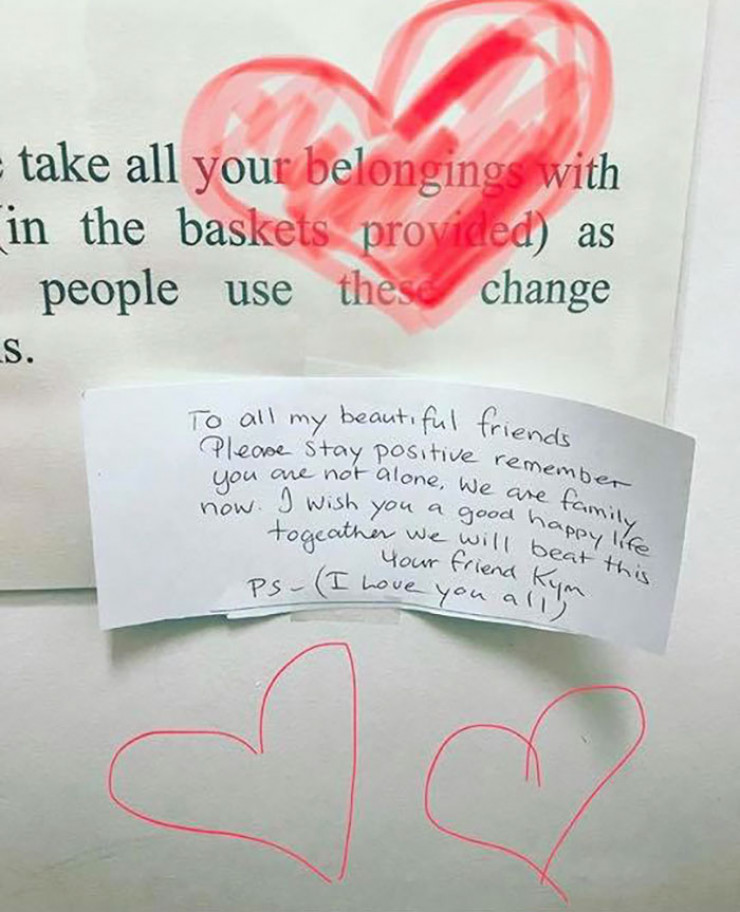 take all your belongings with
(in the baskets provided) as
people use these change
s.
To all my beautiful friends
Please stay positive remember
you are not alone, We are family
now. I wish you a good happy life
togeather we will beat this
Your friend Kym
PS-(I Love you all)